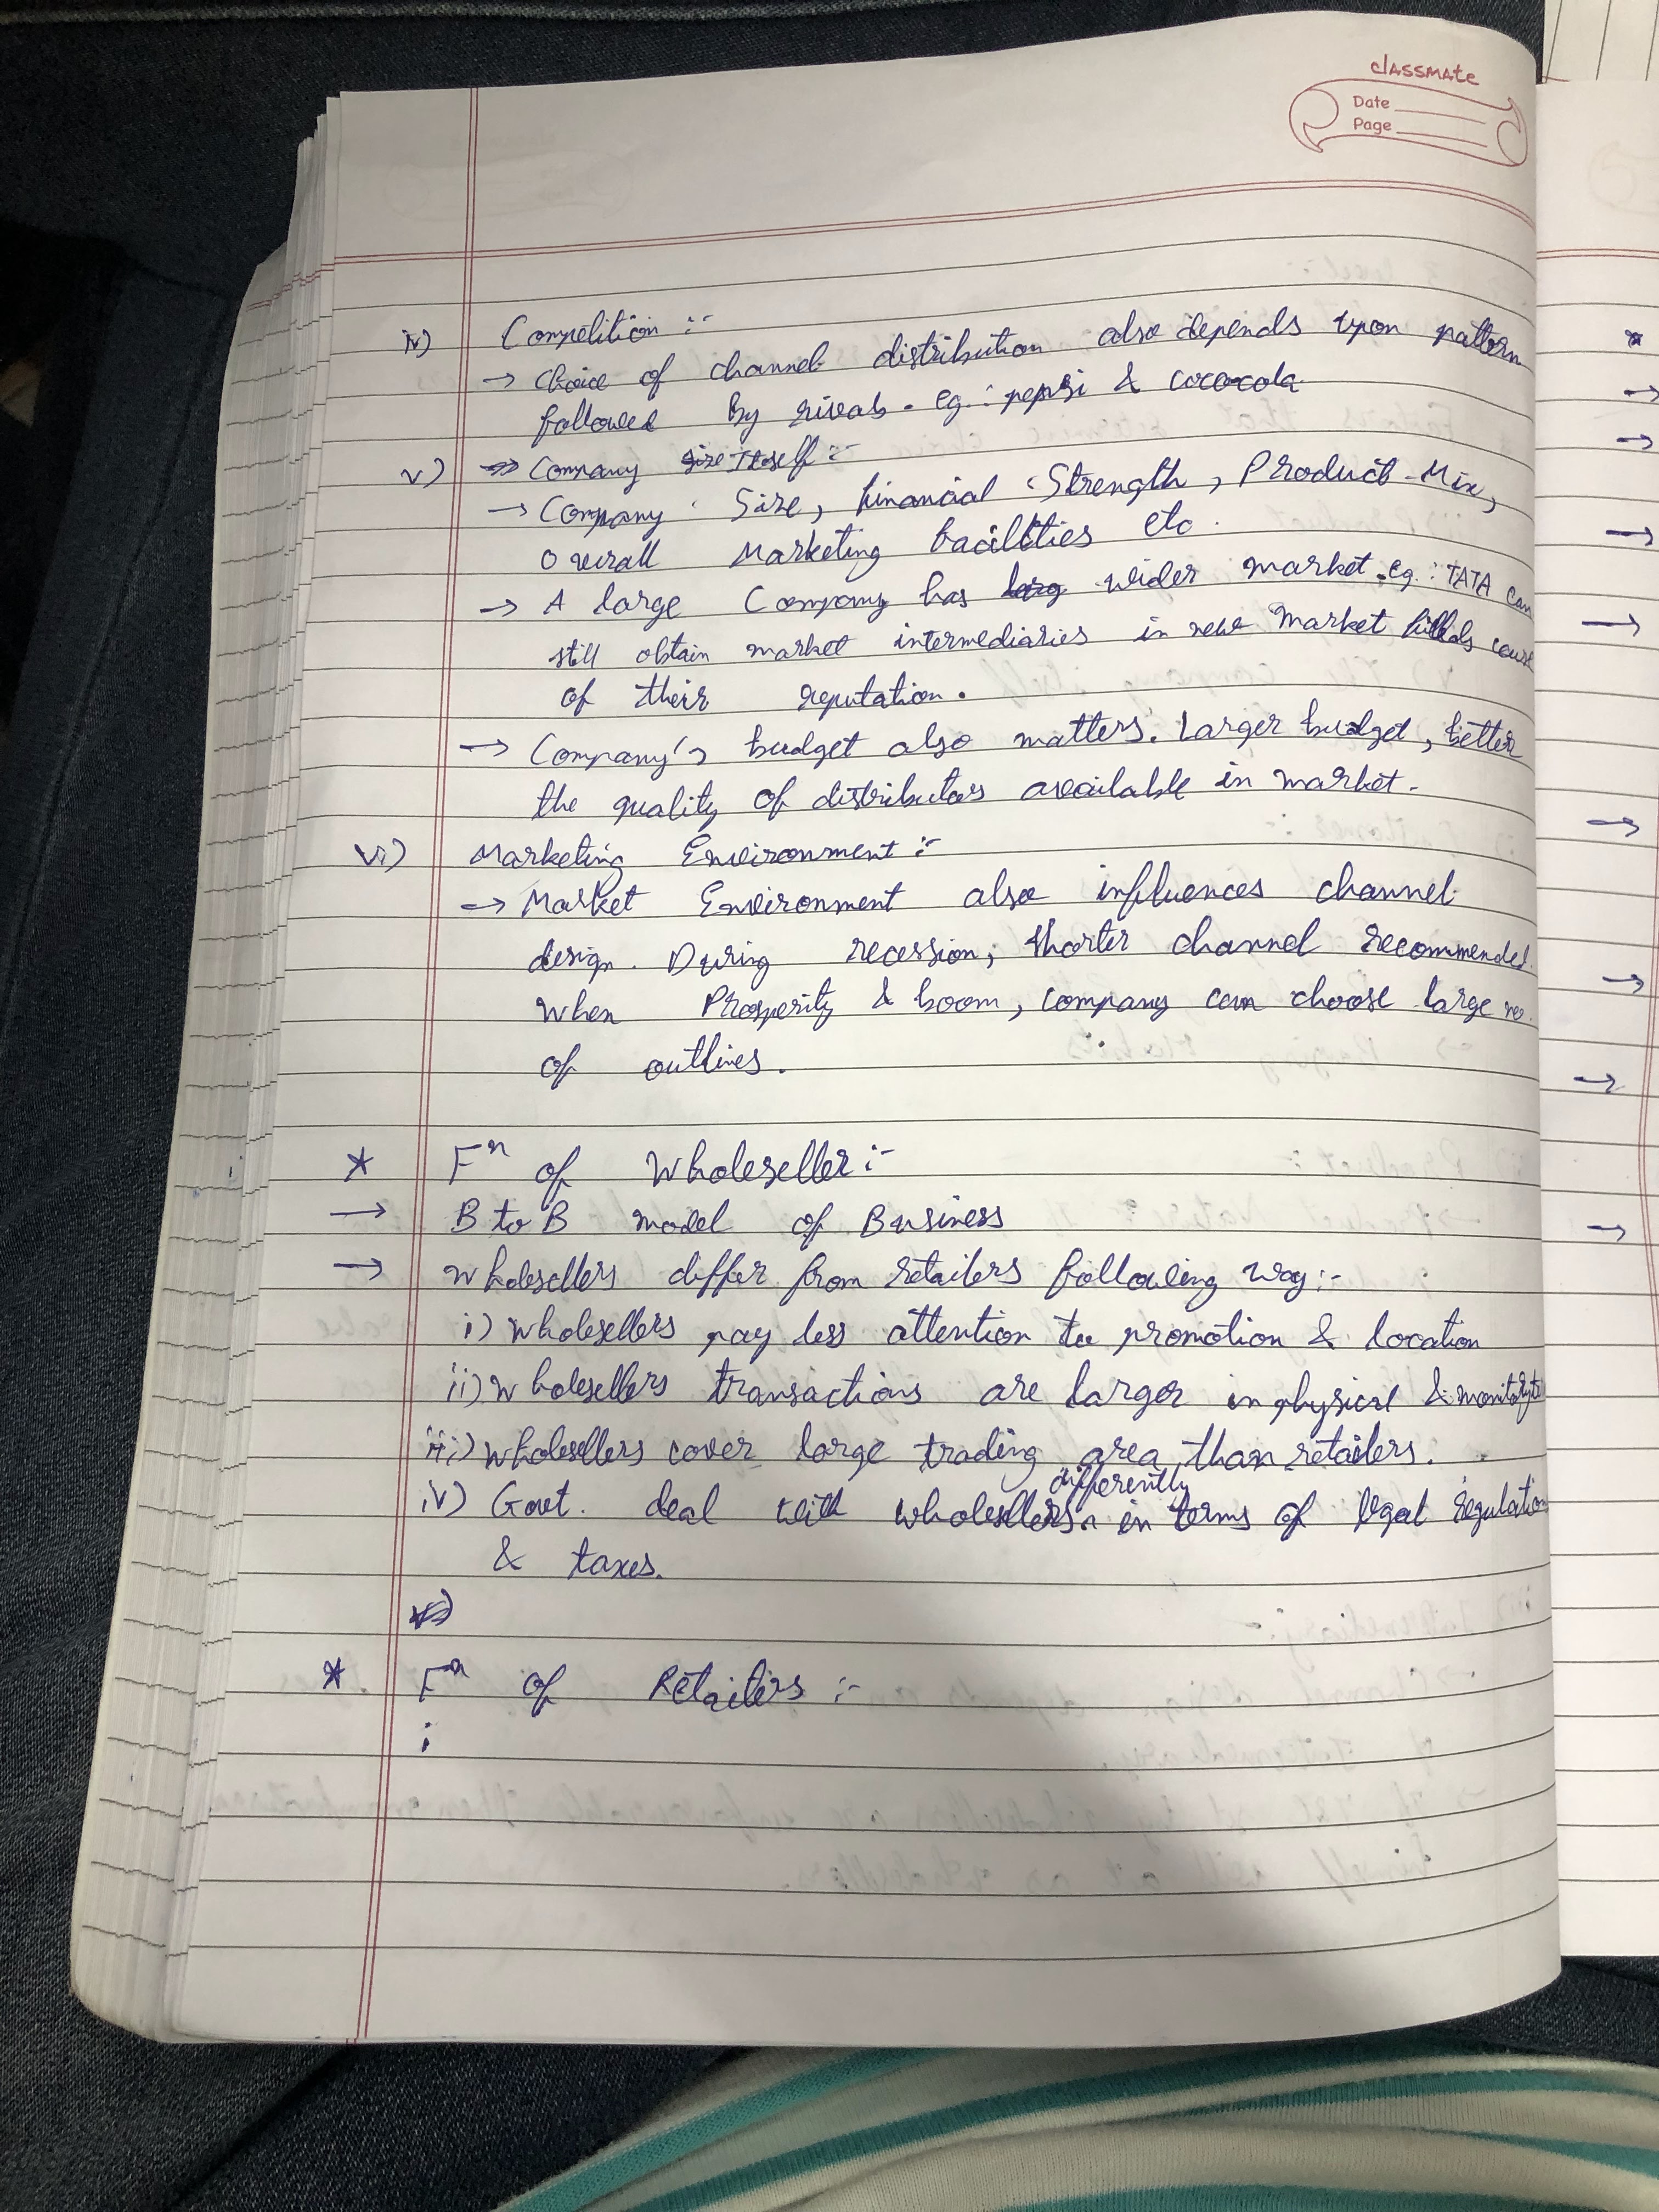 classmate
Date
Page
iv) Competition :-
→ Choice of channel distribution also depends upon pattern
followed By rivals. eg.: pepsi & cococola
v) Company Itself :-
→ Company Size, financial Strength, Product-Mix,
Overall Marketing facilities etc.
→ A large Company has wider market. eg.: TATA can
still obtain market intermediaries in new market cause
of their reputation.
→ Company's budget also matters. Larger budget, better
the quality of distributors available in market.
vi) Marketing Environment :-
→ Market Environment also influences channel
design. During recession, shorter channel recommended.
When Prosperity & boom, company can choose large no.
of outlines.
* Fⁿ of Wholeseller :-
→ B to B model of Business
→ Wholesellers differ from retailers following way :-
i) Wholesellers pay less attention to promotion & location
ii) Wholesellers transactions are larger in physical &
iii) Wholesellers cover large trading area than retailers.
iv) Govt. deal with wholesellers differently in terms of legal regulation
& taxes.
* Fⁿ of Retailers :-
i